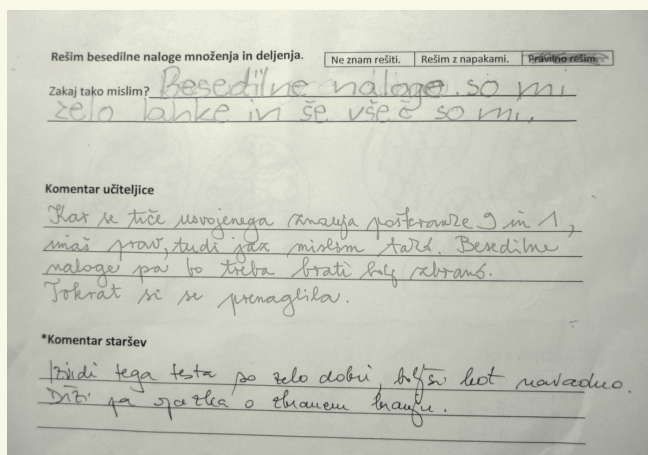 Rešim besedilne naloge množenja in deljenja.
Ne znam rešiti. Rešim z napakami. Pravilno rešim.
Zakaj tako mislim? Besedilne naloge so mi
zelo lahke in še všeč so mi.
Komentar učiteljice
Kar se tiče usvojenega znanja poštevanke 9 in 1,
imaš prav, tudi jaz mislim tako. Besedilne
naloge pa bo treba brati bolj zbrano.
Tokrat si se prenaglila.
*Komentar staršev
Izidi tega testa so zelo dobri, boljši kot navadno.
Drži pa opazka o zbranem branju.